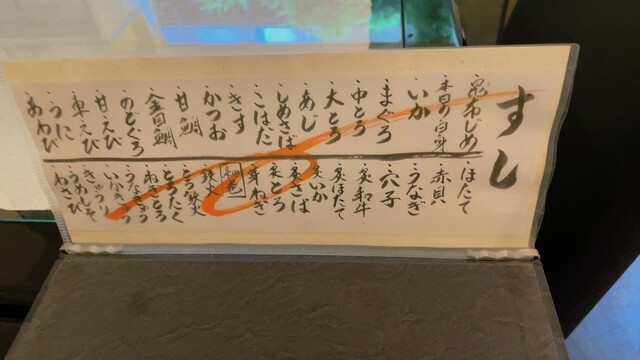 すし
・昆布じめ
・本日の白身
・いか
・まぐろ
・中とろ
・大とろ
・あじ
・しめさば
・こはだ
・きす
・かつお
・甘鯛
・金目鯛
・のどぐろ
・甘えび
・車えび
・うに
・あわび
・ほたて
・赤貝
・うなぎ
・穴子
・炙和牛
・炙ほたて
・炙いか
・炙さば
・炙とろ
・芽ねぎ
・鉄火
・とろ鉄火
・とろたく
・ねぎとろ
・うなきゅう
・いかきゅう
・きゅうり
・うめしそ
・わさび